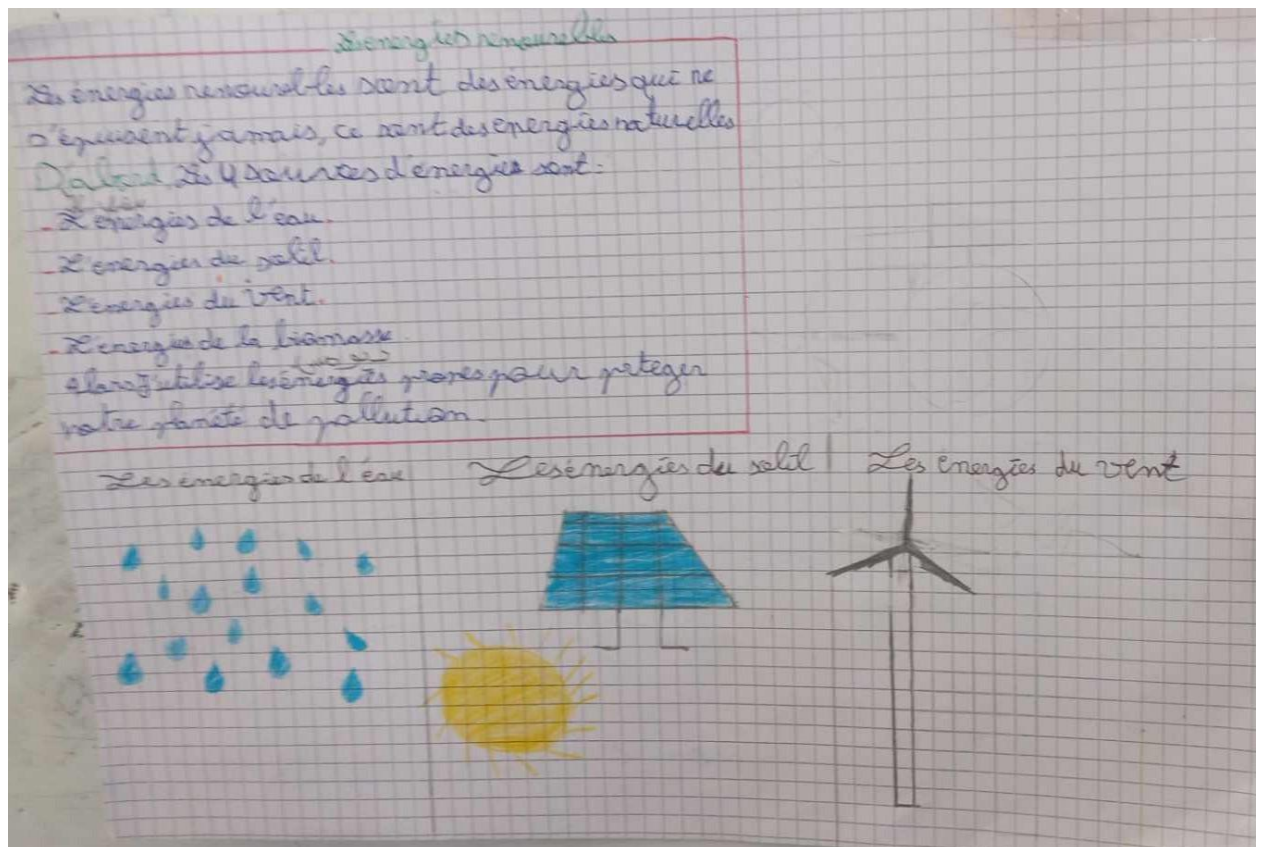 Les énergies renouvelables
Les énergies renouvel-les sont des énergies qui ne
s'épuisent jamais, ce sont des énergies naturelles
D'abord, Les 4 sources d'énergies sont:
- L'énergies de l'eau.
- L'energies du soleil.
- L'energies du vent.
- L'energies de la biomasse.
alors j'utilise les énergies propres pour protéger
notre planète de pollution.
Les énergies de l'eau
Les énergies du soleil
Les energies du vent